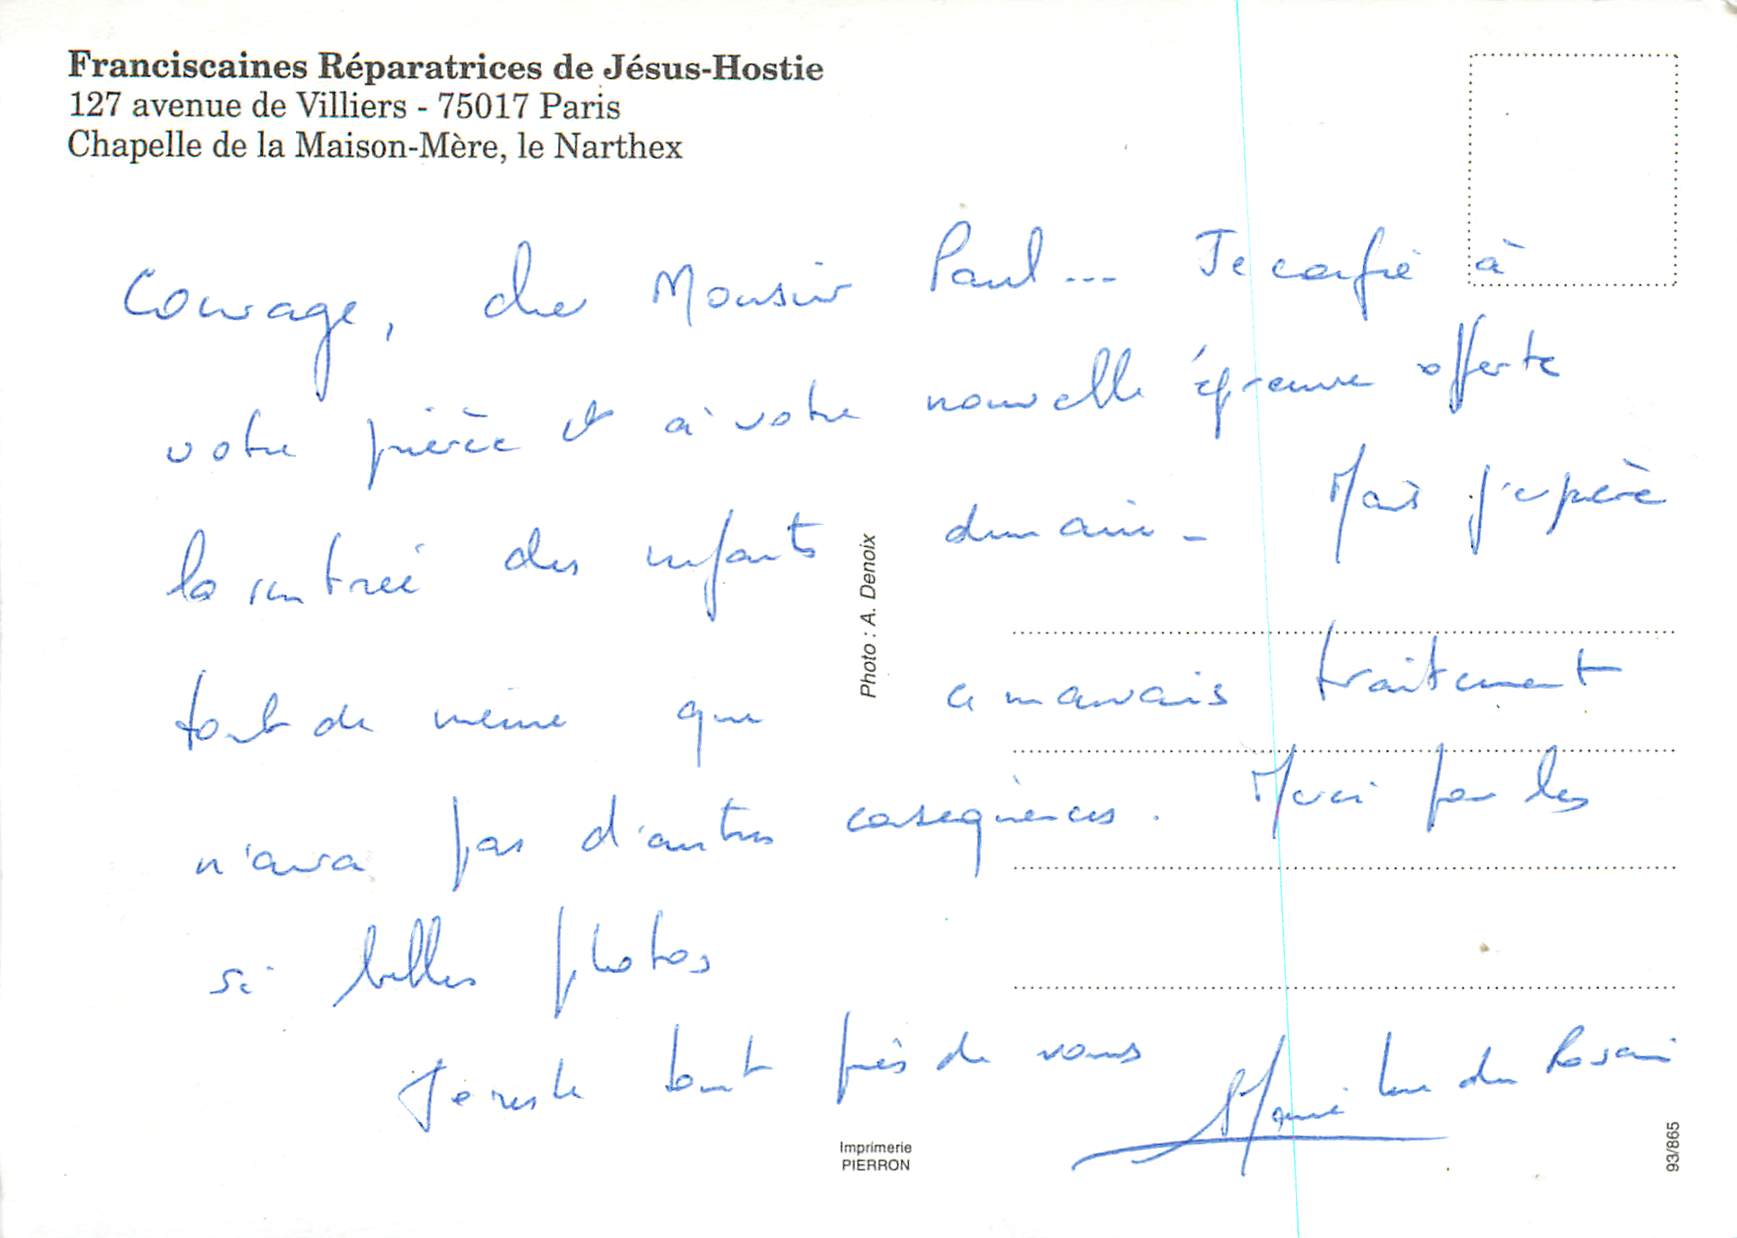 Franciscaines Réparatrices de Jésus-Hostie
127 avenue de Villiers - 75017 Paris
Chapelle de la Maison-Mère, le Narthex
Courage, cher Monsieur Paul... Je confie à
votre prière et à votre nouvelle épreuve offerte
la rentrée des enfants demain - Mais j'espère
tout de même que ce mauvais traitement
n'aura pas d'autres conséquences. Merci pour les
si belles photos
Je reste tout près de vous
Marie Luc du Rosaire
Photo : A. Denoix
Imprimerie
PIERRON
93/865